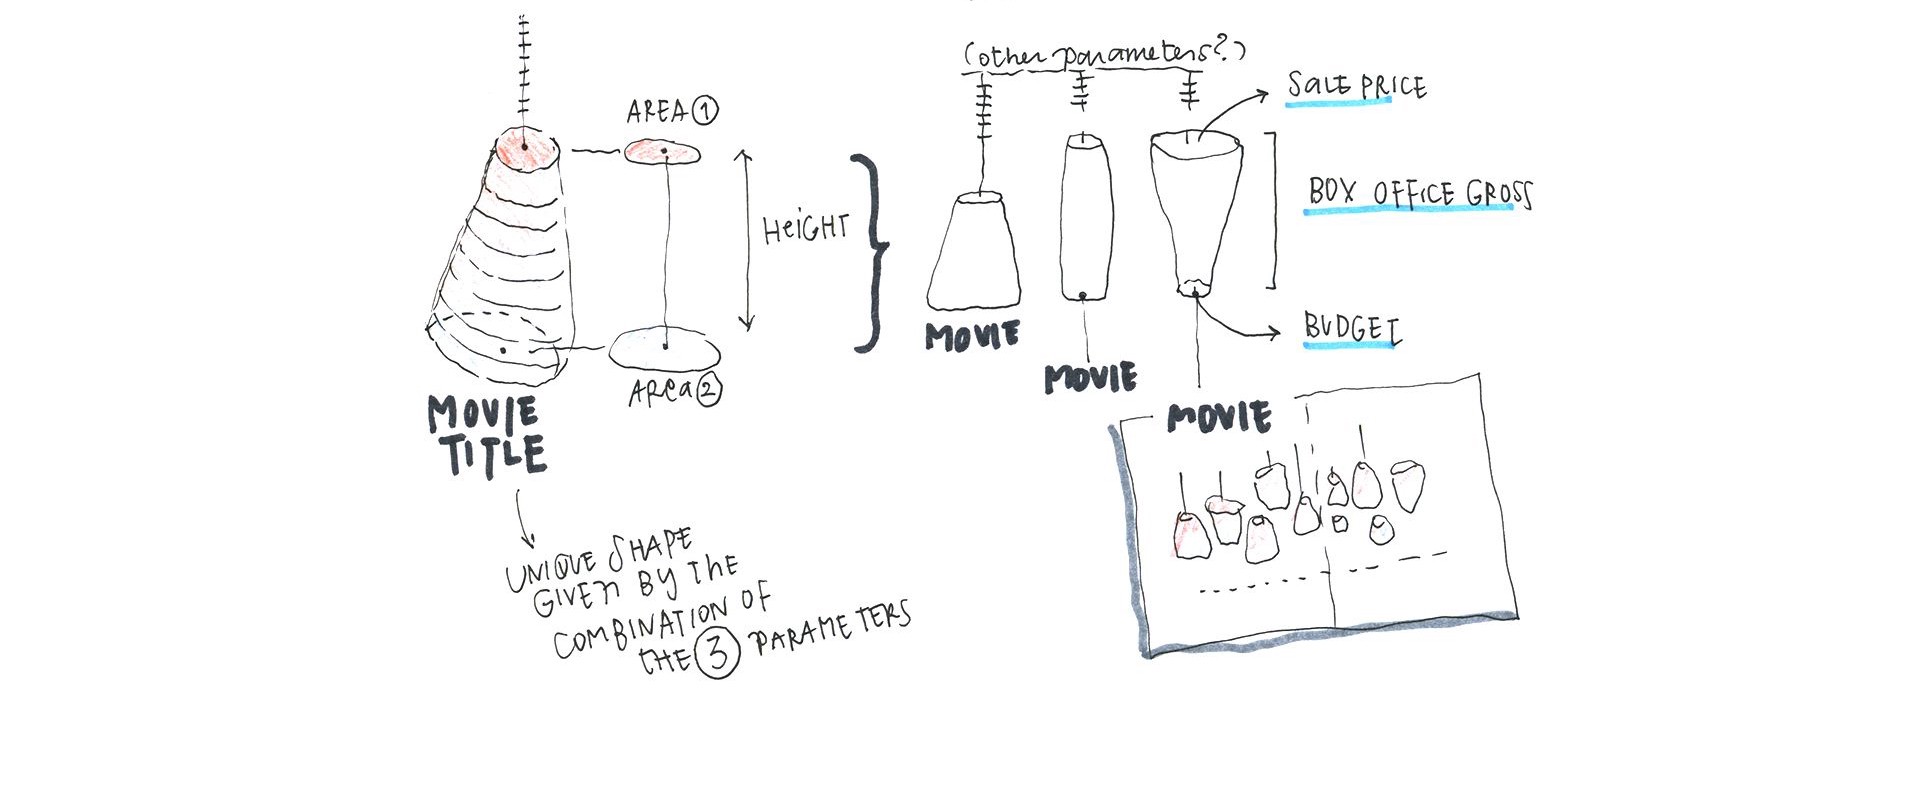 AREA 1
HEIGHT
AREA 2
MOVIE
TITLE
UNIQUE SHAPE
GIVEN BY THE
COMBINATION OF
THE 3 PARAMETERS
(other parameters?)
SALE PRICE
BOX OFFICE GROSS
BUDGET
MOVIE
MOVIE
MOVIE